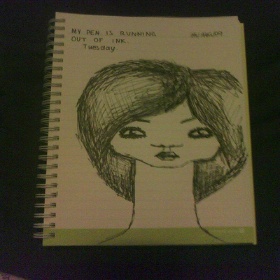 MY PEN IS RUNNING
OUT OF INK..
Tuesday